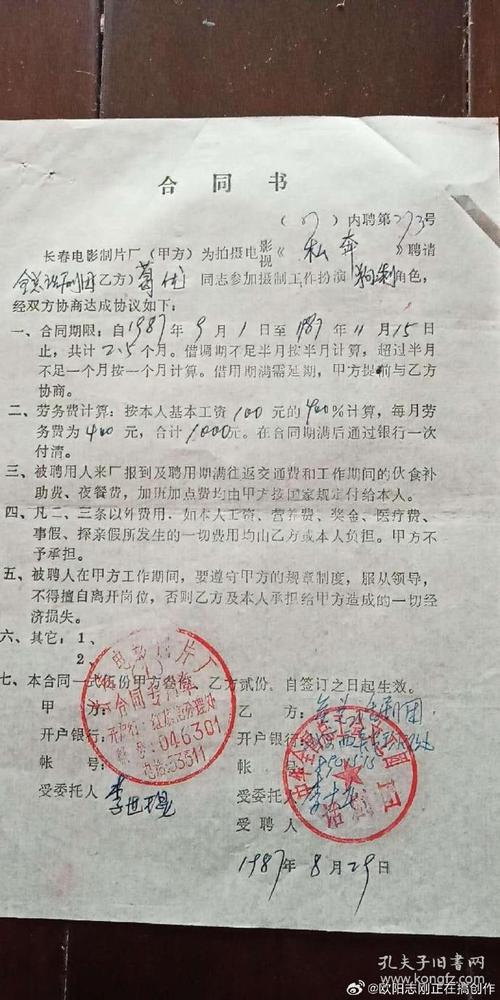 合同书
(87)内聘第273号
长春电影制片厂(甲方)为拍摄电影视《私奔》聘请
全总话剧团乙方)葛优 同志参加摄制工作扮演 角色,
经双方协商达成协议如下:
一、合同期限:自1987年9月1日至1987年11月15日
止,共计2.5个月。借调期不足半月按半月计算,超过半月
不足一个月按一个月计算。借用期满需延期,甲方提前与乙方
协商。
二、劳务费计算:按本人基本工资100元的400%计算,每月劳
务费为400元,合计1000元。在合同期满后通过银行一次
付清。
三、被聘用人来厂报到及聘用期满往返交通费和工作期间的伙食补
助费、夜餐费,加班加点费均由甲方按国家规定付给本人。
四、凡二、三条以外费用.如本人工资、营养费、奖金、医疗费、
事假、探亲假所发生的一切费用均由乙方或本人负担。甲方不
予承担。
五、被聘人在甲方工作期间,要遵守甲方的规章制度,服从领导,
不得擅自离开岗位,否则乙方及本人承担给甲方造成的一切经
济损失。
六、其它:1、
2、
七、本合同一式伍份甲方叁份,乙方贰份。自签订之日起生效。
甲方:
乙方:全总话剧团
开户银行:
开户银行:
帐号:
帐号:
受委托人
受委托人
受聘人
1987年8月29日
长春电影制片厂
合同专用章
开户行:红旗街办理处
帐号:046301
电话:53311
孔夫子旧书网
www.kongfz.com
@欧阳志刚正在搞创作